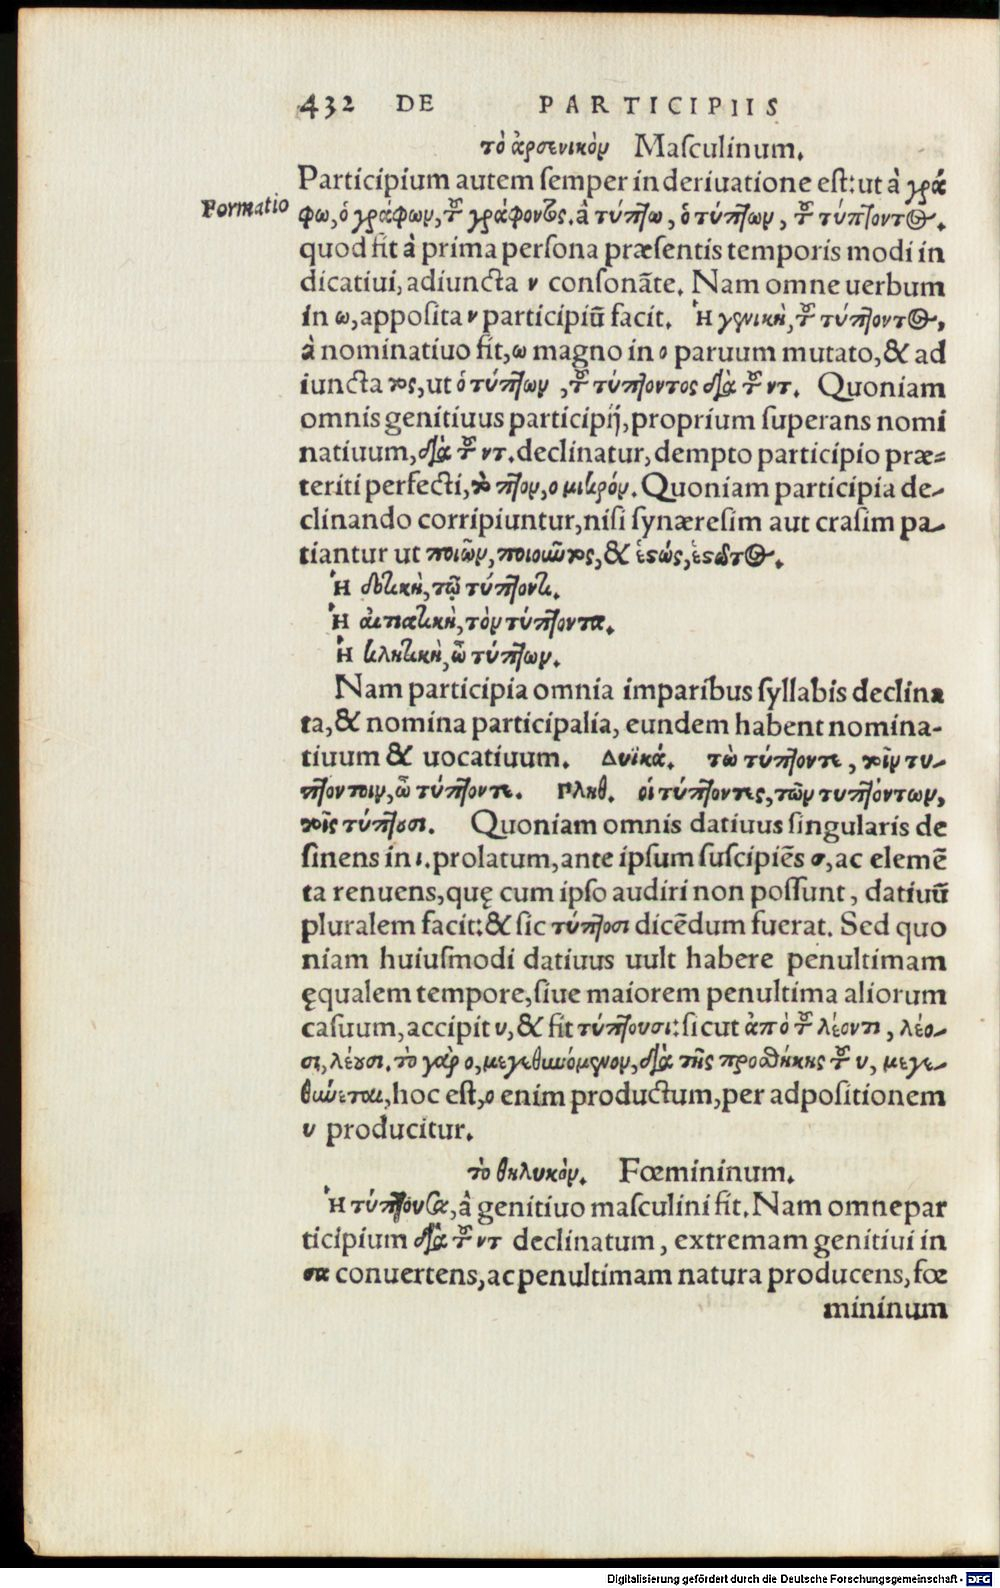 432 DE PARTICIPIIS
τὸ ἀρσενικὸν Maſculinum.
Participium autem ſemper in deriuatione eſt: ut à γρά
Formatio
φω, ὁ γράφων, τοῦ γράφοντος. à τύπτω, ὁ τύπτων, τοῦ τύπτοντος.
quod fit à prima perſona præſentis temporis modi in
dicatiui, adiuncta ν conſonāte. Nam omne uerbum
in ω, appoſita ν participiū facit. Ἡ γενικὴ, τοῦ τύπτοντος,
à nominatiuo fit, ω magno in ο paruum mutato, & ad
iuncta τος, ut ὁ τύπτων, τοῦ τύπτοντος διὰ τοῦ ντ. Quoniam
omnis genitiuus participij, proprium ſuperans nomi
natiuum, διὰ τοῦ ντ. declinatur, dempto participio præ=
teriti perfecti, τὸ πτον, ο μικρόν. Quoniam participia de-
clinando corripiuntur, niſi ſynæreſim aut craſim pa-
tiantur ut ποιῶν, ποιοῦντος, & ἑστώς, ἑστῶτος.
Ἡ δοτικὴ, τῷ τύπτοντι.
Ἡ αἰτιατικὴ, τὸν τύπτοντα.
Ἡ κλητικὴ, ὦ τύπτων.
Nam participia omnia imparibus ſyllabis declina
ta, & nomina participalia, eundem habent nomina-
tiuum & uocatiuum. Δυϊκά. τὼ τύπτοντε, τοῖν τυ-
πτόντοιν, ὦ τύπτοντε. Πληθ. οἱ τύπτοντες, τῶν τυπτόντων,
τοῖς τύπτουσι. Quoniam omnis datiuus ſingularis de
ſinens in ι. prolatum, ante ipſum ſuſcipiēs σ, ac elemē
ta renuens, quę cum ipſo audiri non poſſunt, datiuū
pluralem facit: & ſic τύπτοσι dicēdum fuerat. Sed quo
niam huiuſmodi datiuus uult habere penultimam
ęqualem tempore, ſiue maiorem penultima aliorum
caſuum, accipit υ, & fit τύπτουσι: ſicut ἀπὸ τοῦ λέοντι, λέο-
σι, λέουσι. τὸ γὰρ ο, μεγεθυνόμενον, διὰ τῆς προσθήκης τοῦ υ, μεγε-
θύνεται, hoc eſt, ο enim productum, per adpoſitionem
υ producitur.
τὸ θηλυκὸν. Fœmininum.
Ἡ τύπτουσα, à genitiuo maſculini fit. Nam omne par
ticipium διὰ τοῦ ντ declinatum, extremam genitiui in
σα conuertens, ac penultimam natura producens, fœ
mininum
Digitalisierung gefördert durch die Deutsche Forschungsgemeinschaft - DFG